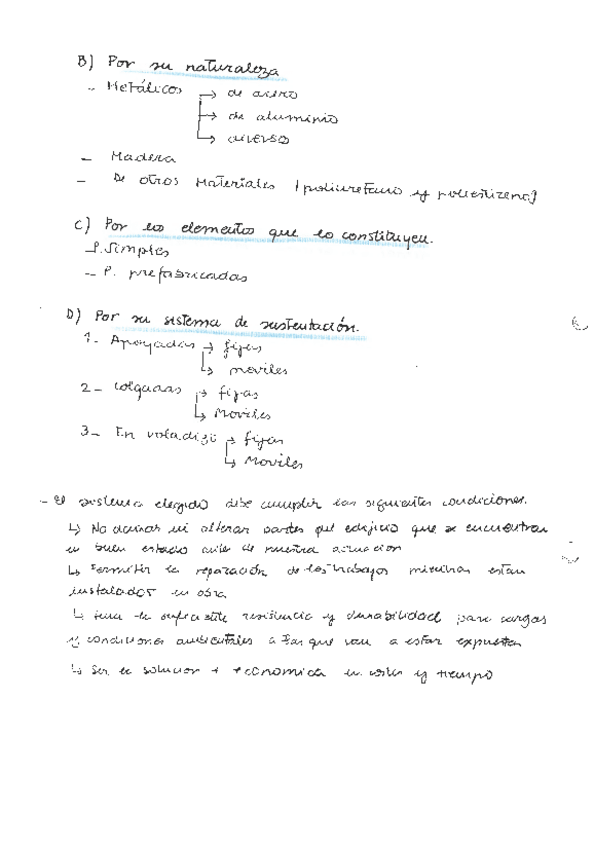 B) Por su naturaleza
- Metálicos → de acero
→ de aluminio
→ diverso
- Madera
- De otros Materiales (poliuretano y poliestireno)
C) Por los elementos que lo constituyen.
- P. Simples
- P. prefabricadas
D) Por su sistema de sustentación.
1- Apoyadas → fijas
↳ moviles
2- Colgadas → fijas
↳ Moviles
3- En voladizo → fijas
↳ Moviles
- El sistema elegido debe cumplir las siguientes condiciones.
↳ No dañar ni alterar partes del edificio que se encuentran
en buen estado antes de nuestra actuacion
↳ Permitir la reparación de los trabajos mientras estan
instalados en obra
↳ tener la suficiente resistencia y durabilidad para cargas
y condiciones ambientales a las que van a estar expuestas
↳ Ser la solucion + economica en costes y tiempo